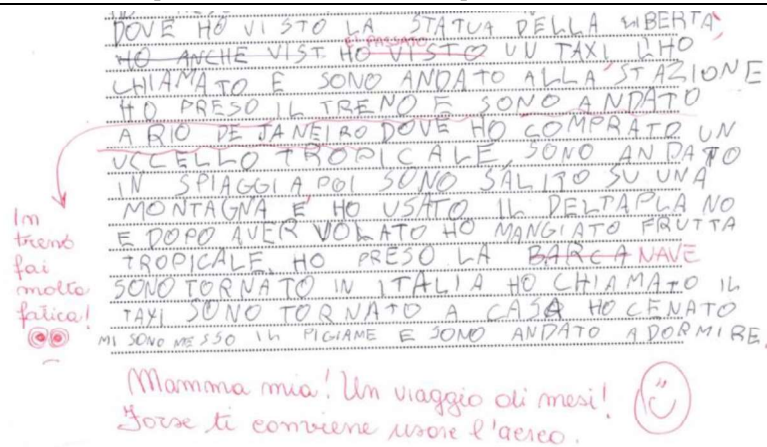 DOVE HO VISTO LA STATUA DELLA LIBERTÀ
È PASSATO
HO ANCHE VIST HO VISTO UN TAXI LHO
CHIAMATO E SONO ANDATO ALLA STAZIONE
HO PRESO IL TRENO E SONO ANDATO
A RIO DE JANEIRO DOVE HO COMPRATO UN
UCCELLO TROPICALE, SONO ANDATO
IN SPIAGGIA POI SONO SALITO SU UNA
MONTAGNA E HO USATO IL DELTAPLANO
E DOPO AVER VOLATO HO MANGIATO FRUTTA
TROPICALE. HO PRESO LA BARCA NAVE
SONO TORNATO IN ITALIA HO CHIAMATO IL
TAXI SONO TORNATO A CASA HO CENATO
MI SONO MESSO IL PIGIAME E SONO ANDATO A DORMIRE.
In
treno
fai
molta
fatica!
Mamma mia! Un viaggio di mesi!
Forse ti conviene usare l'aereo.